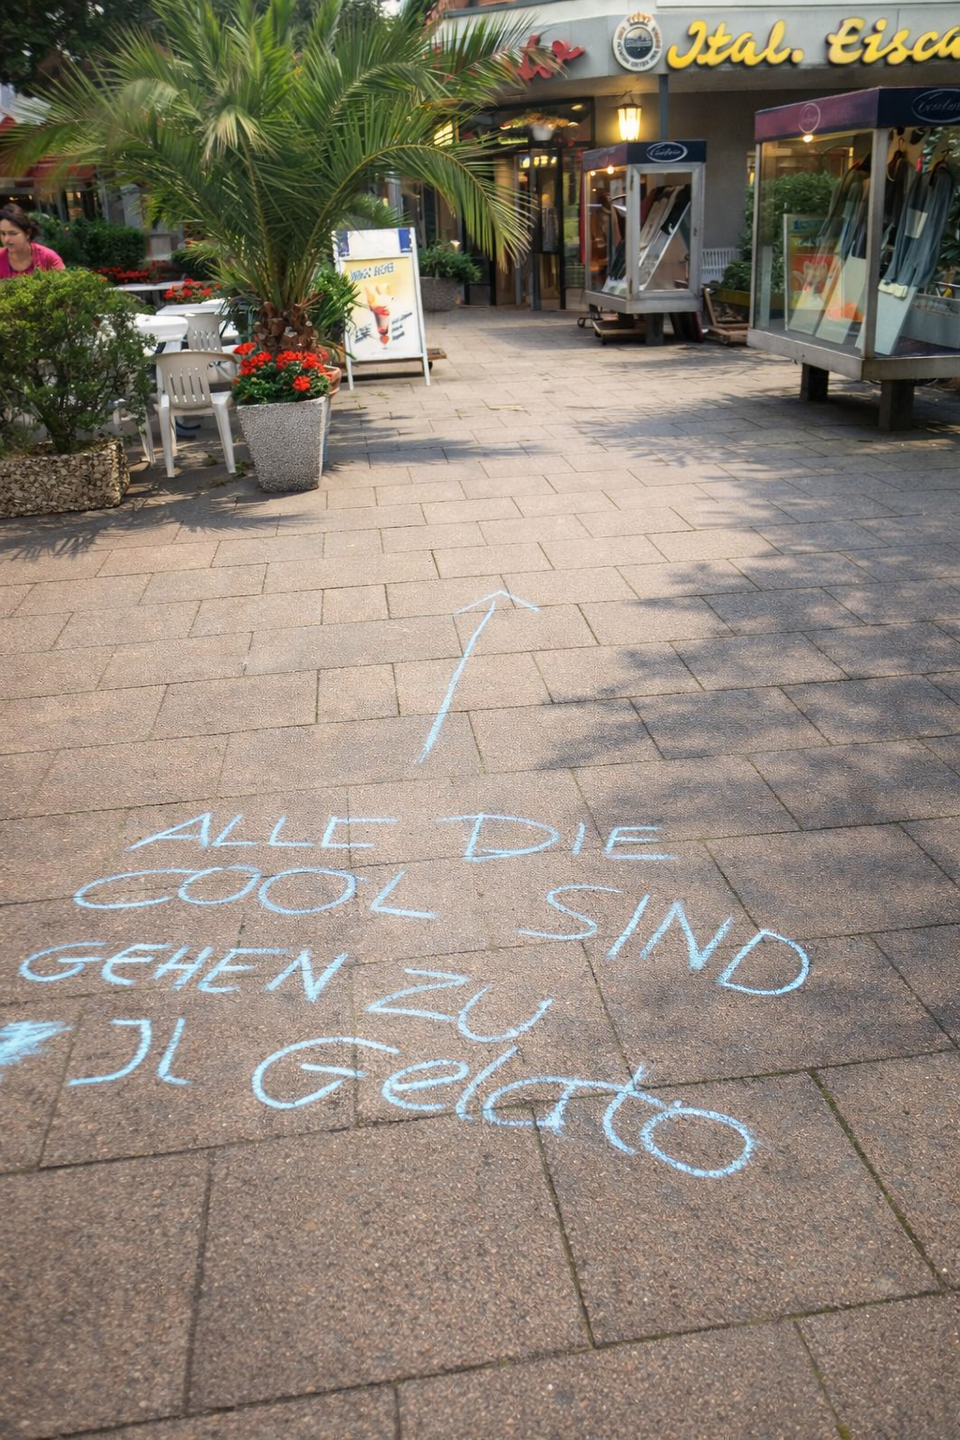 Ital. Eisca
ALLE DIE
COOL SIND
GEHEN ZU
JL Gelato